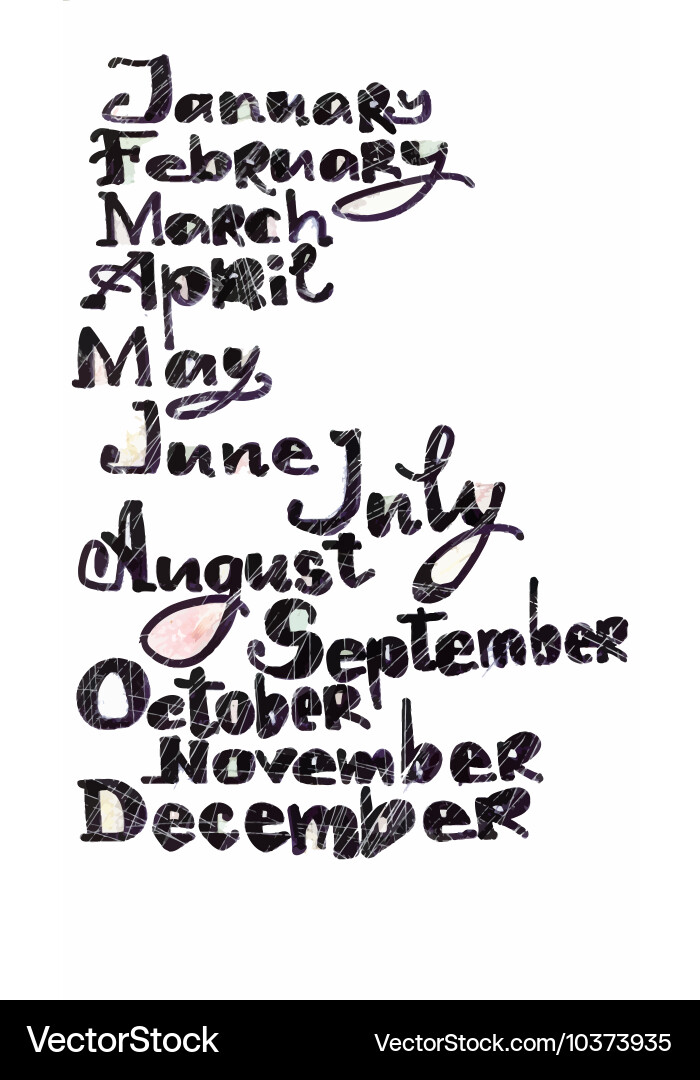 January
February
March
April
May
June
July
August
September
October
November
December
VectorStock®
VectorStock.com/10373935